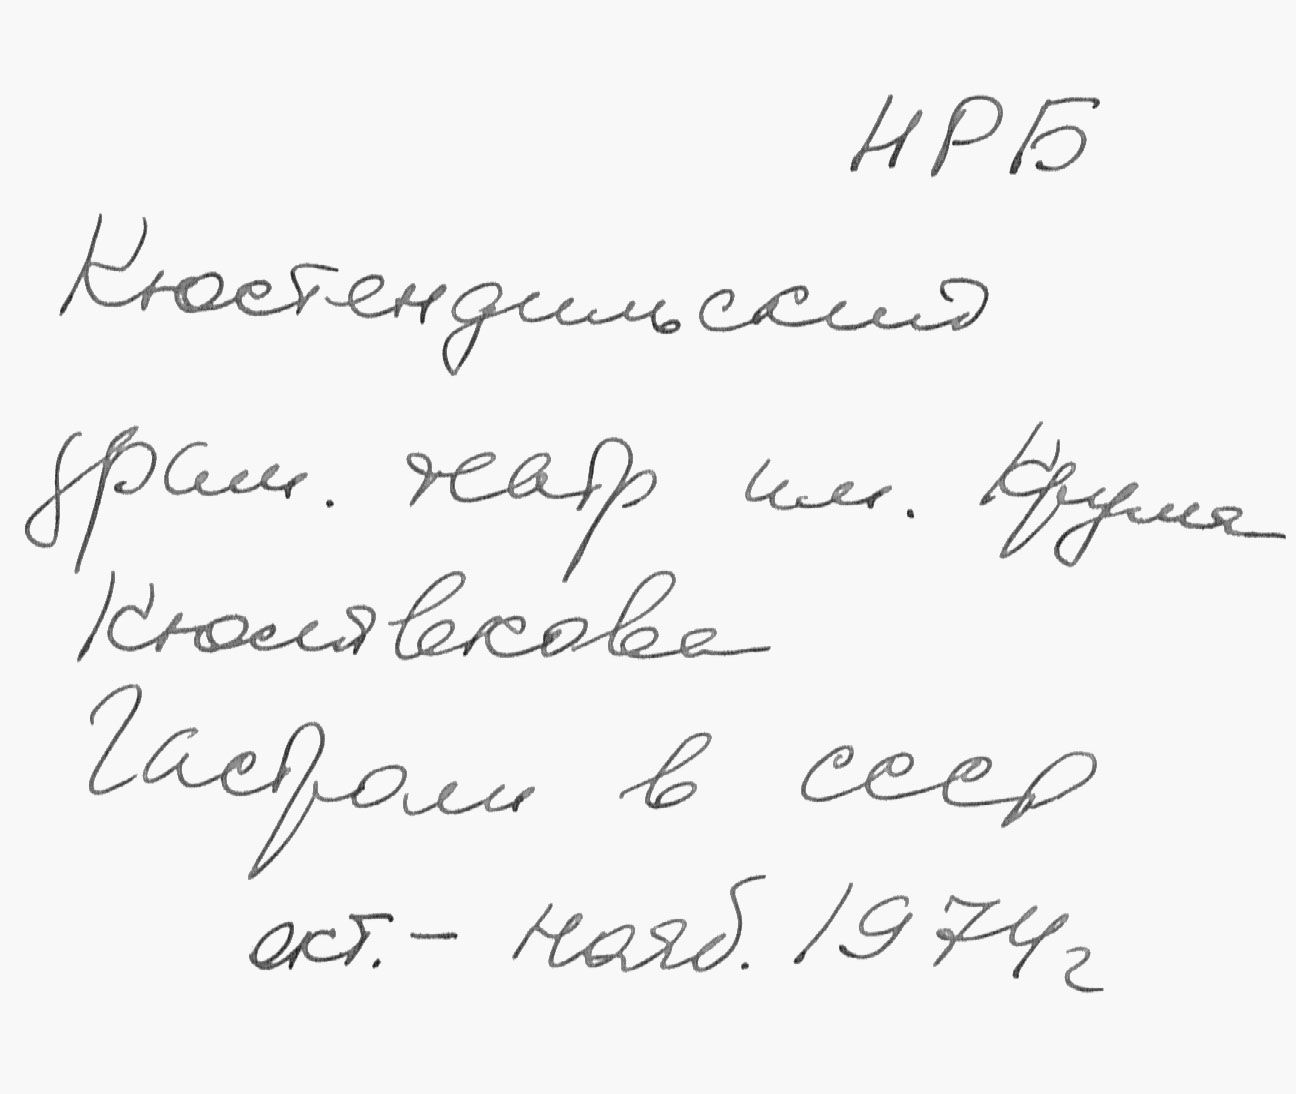 НРБ
Кюстендильский
драм. театр им. Крума
Кюлявкова
Гастроли в СССР
окт. – нояб. 1974 г